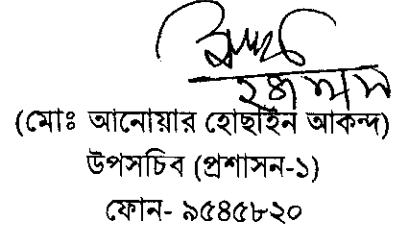 (মোঃ আনোয়ার হোছাইন আকন্দ)
উপসচিব (প্রশাসন-১)
ফোন- ৯৫৪৫৮২০